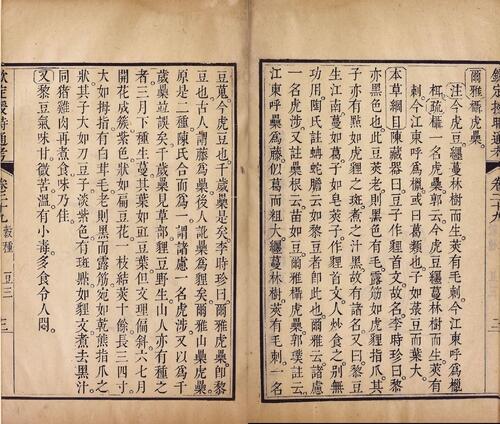 欽定授時通考
爾雅欇虎櫐
注今虎豆纏蔓林樹而生莢有毛刺今江東呼為欇
疏欇一名虎櫐郭云今虎豆纏蔓林樹而生莢有
刺今江東呼為欇或曰葛類也子如菉豆而葉大
本草綱目陳藏器曰豆子作貍首文故名李時珍曰黎
亦黑色也此豆莢老則黑色有毛露筋如虎貍指爪其
子亦有點如虎貍之斑煮之汁黑故有諸名又曰貍豆
生江南蔓如葛子如皂莢子作貍首文人炒食之别無
功用陶氏註蚺蛇膽云如黎豆者即此也爾雅云諸慮
一名虎涉又註櫐根云苗如豆爾雅欇虎櫐郭璞註云
江東呼櫐為藤似葛而粗大纏蔓林樹莢有毛刺一名
豆蔰今虎豆也千歲櫐是矣李時珍曰爾雅虎櫐即黎
豆也古人謂藤為櫐後人訛櫐為貍矣爾雅山櫐虎櫐
原是二種陳氏合而為一謂諸慮一名虎涉又以為千
歲櫐竝誤矣千歲櫐見草部貍豆野生山人亦有種之
者三月下種生蔓其葉如豇豆葉但文理偏斜六七月
開花成簇紫色狀如扁豆花一枝結莢十餘長三四寸
大如拇指有白茸毛老則黑而露筋宛如乾熊指爪之
狀其子大如刀豆子淡紫色有斑點如貍文煮去黑汁
同猪雞肉再煮食味乃佳
又黎豆氣味甘微苦溫有小毒多食令人悶
欽定授時通考
卷二十九 穀種 豆三 三